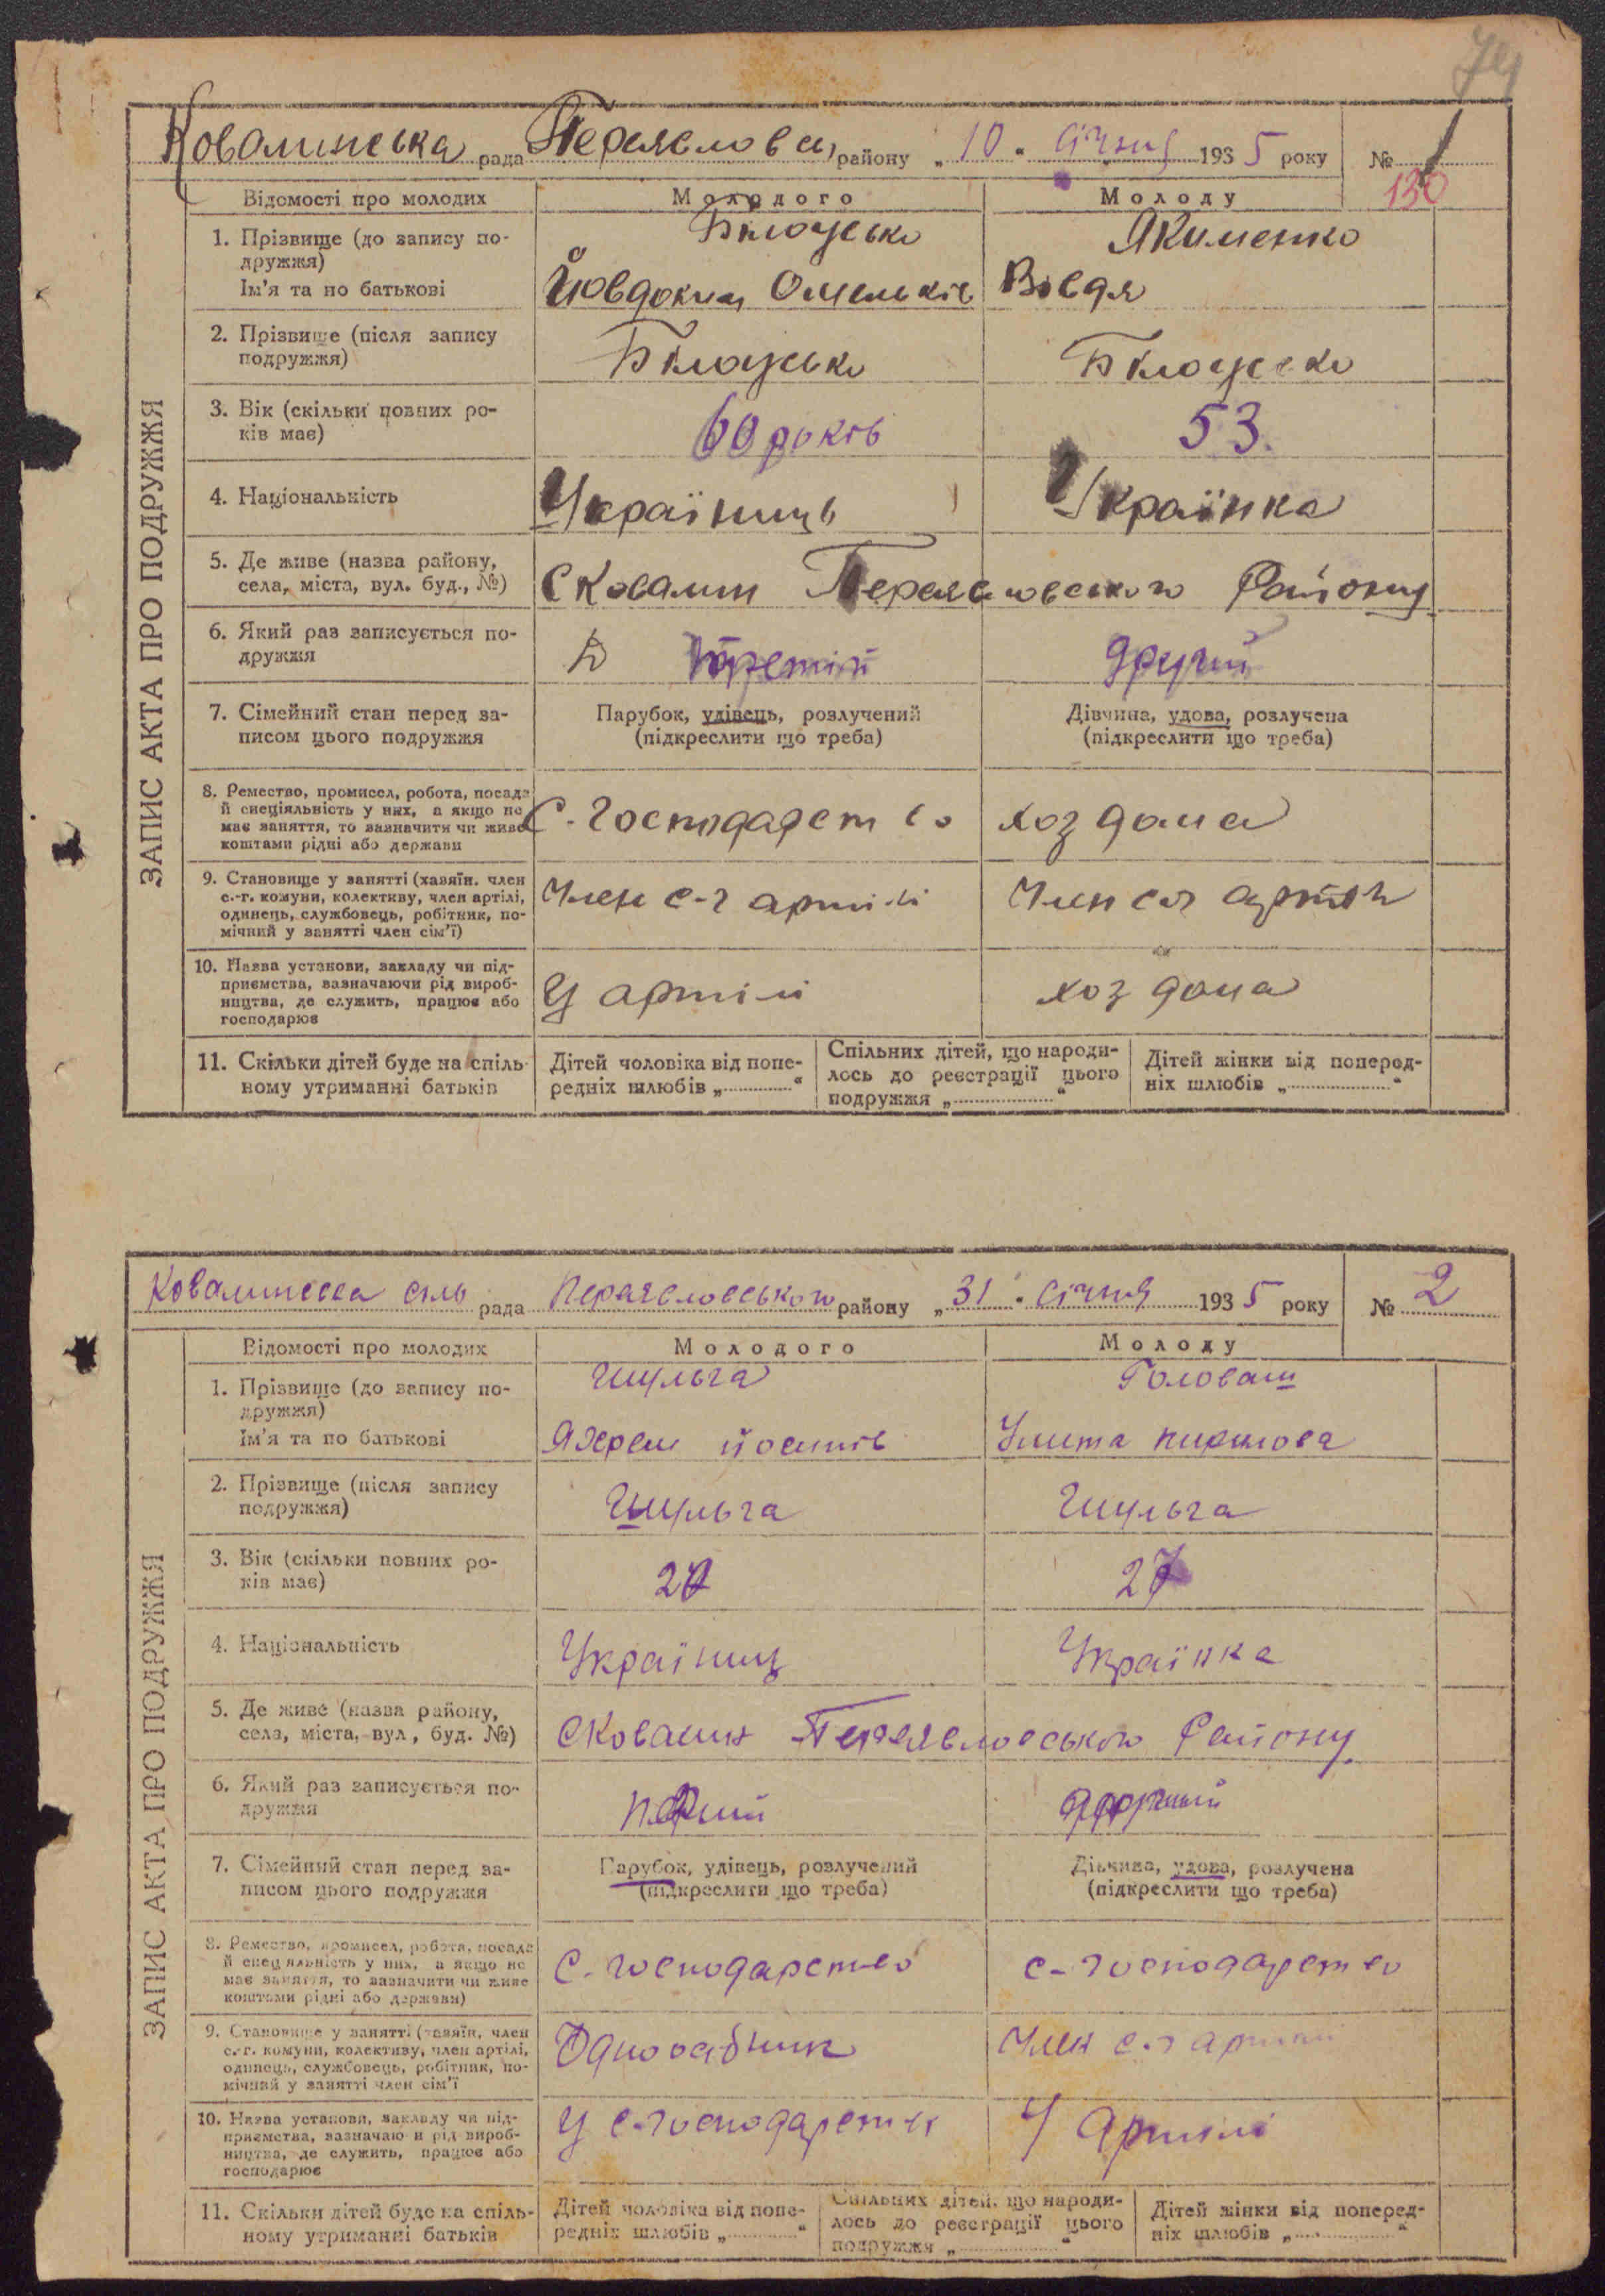 74
Ковалинська рада Переяслова району „ 10 " січня 1935 року № 1
130
ЗАПИС АКТА ПРО ПОДРУЖЖЯ
Відомості про молодих Молодого Молоду
1. Прізвище (до запису по-
дружжя)
Якименко
Ім'я та по батькові
Йовдоким Омельків Вівдя
2. Прізвище (після запису
подружжя)
3. Вік (скільки повних ро-
ків має)
60 років 53.
4. Національність
Україниць Українка
5. Де живе (назва району,
села, міста, вул. буд., №)
С Ковалин Переяславського Району
6. Який раз записується по-
дружжя
третій другий
7. Сімейний стан перед за-
писом цього подружжя
Парубок, удівець, розлучений
(підкреслити що треба)
Дівчина, удова, розлучена
(підкреслити що треба)
8. Ремество, промисел, робота, посада
й спеціяльність у них, а якщо не
має заняття, то зазначити чи живе
коштами рідні або держави
С. Господарство хоз дома
9. Становище у занятті (хазяїн. член
с.-г. комуни, колективу, член артілі,
одинець, службовець, робітник, по-
мічний у занятті член сім'ї)
Член с-г артілі Член с г артілі
10. Назва установи, закладу чи під-
приємства, зазначаючи рід вироб-
ництва, де служить, працює або
господарює
У артілі хоз дома
11. Скільки дітей буде на спіль-
ному утриманні батьків
Дітей чоловіка від попе-
редніх шлюбів „ “
Спільних дітей, що народи-
лось до реєстрації цього
подружжя „ “
Дітей жінки від поперед-
ніх шлюбів „ “
Ковалинська сіль рада Переяславського району „ 31 " січня 1935 року № 2
ЗАПИС АКТА ПРО ПОДРУЖЖЯ
Відомості про молодих Молодого Молоду
1. Прізвище (до запису по-
дружжя)
Шульга Головаш
Ім'я та по батькові
Яхрем йосипів Улита
2. Прізвище (після запису
подружжя)
Шульга Шульга
3. Вік (скільки повних ро-
ків має)
27
4. Національність
Україниць Українка
5. Де живе (назва району,
села, міста, вул, буд. №)
С Ковалин Переяславського Району
6. Який раз записується по-
дружжя
перший другий
7. Сімейний стан перед за-
писом цього подружжя
Парубок, удівець, розлучений
(підкреслити що треба)
Дівчина, удова, розлучена
(підкреслити що треба)
8. Ремество, промисел, робота, посада
й спеціяльність у них, а якщо не
має заняття, то зазначити чи живе
коштами рідні або держави)
С. господарство с-господарство
9. Становище у занятті (хазяїн, член
с.-г. комуни, колективу, член артілі,
одинець, службовець, робітник, по-
мічний у занятті член сім'ї
Одноосібник Член с-г артілі
10. Назва установи, закладу чи під-
приємства, зазначаючи рід вироб-
ництва, де служить, працює або
господарює
У с-господарстві У Артілі
11. Скільки дітей буде на спіль-
ному утриманні батьків
Дітей чоловіка від попе-
редніх шлюбів „ “
Спільних дітей, що народи-
лось до реєстрації цього
подружжя „ “
Дітей жінки від поперед-
ніх шлюбів „ “